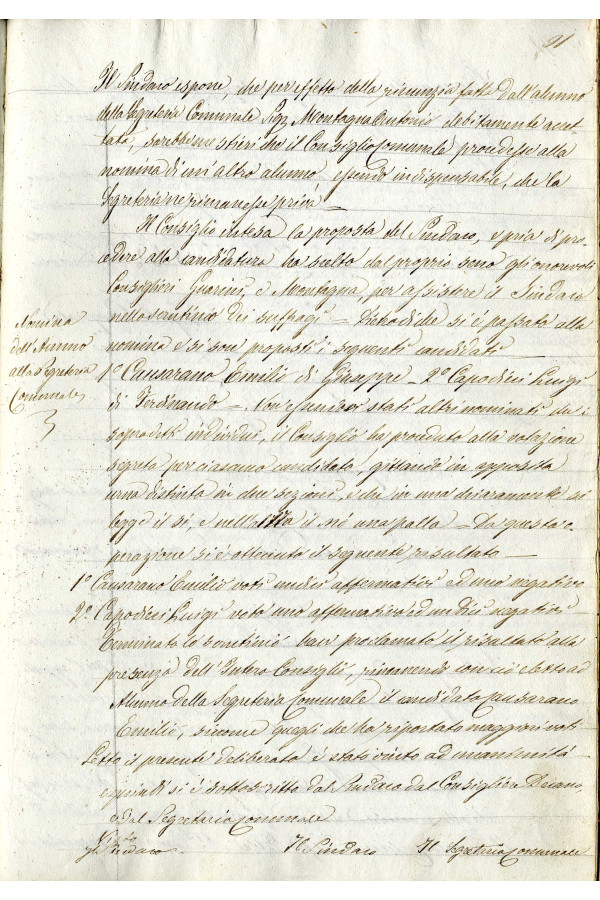 91
Il Sindaco espone, che per effetto della rinunzia fatta dall'alunno
della Segreteria Comunale Sigr Montagna Antonio debitamente accet-
tata, sarebbe mestieri che il Consiglio Comunale procedesse alla
nomina di un altro alunno essendo indispensabile, che la
Segreteria ne rimanesse priva —
Il Consiglio intesa la proposta del Sindaco, e pria di pro-
cedere alla candidatura ha scelto dal proprio seno gli onorevoli
Consiglieri Guarini e Montagna, per assistere il Sindaco
nello scrutinio dei suffragi — Dietro di che si è passato alla
nomina e si son proposti i seguenti candidati —
Nomina
dell'Alunno
alla Segreteria
Comunale
1º Causarano Emilio di Giuseppe — 2º Capodici Luigi
di Ferdinando — Non essendovi stati altri nominati dei
sopradetti individui, il Consiglio ha proceduto alla votazione
segreta per ciascuno candidato, gittando in apposita
urna distinta in due sezioni, e che in una chiaramente si
legge il si, e nell'altra il nò una palla — Da questa o-
perazione si è ottenuto il seguente risultato —
1º Causarano Emilio voti undici affermativi ed uno negativo
2º Capodici Luigi voto uno affermativo ed undici negativi —
Terminato lo scrutinio han proclamato il risultato alla
presenza dell'Intero Consiglio, rimanendo con ciò eletto ad
Alunno della Segreteria Comunale il candidato Causarano
Emilio, siccome quegli che ha riportato maggiori voti
Letto il presente deliberato è stato vinto ad unanimità
e quindi si è sottoscritto dal Sindaco dal Consigliere Decano,
e dal Segretario Comunale
Visto
Il Sindaco
Il Sindaco Il Segretario Comunale